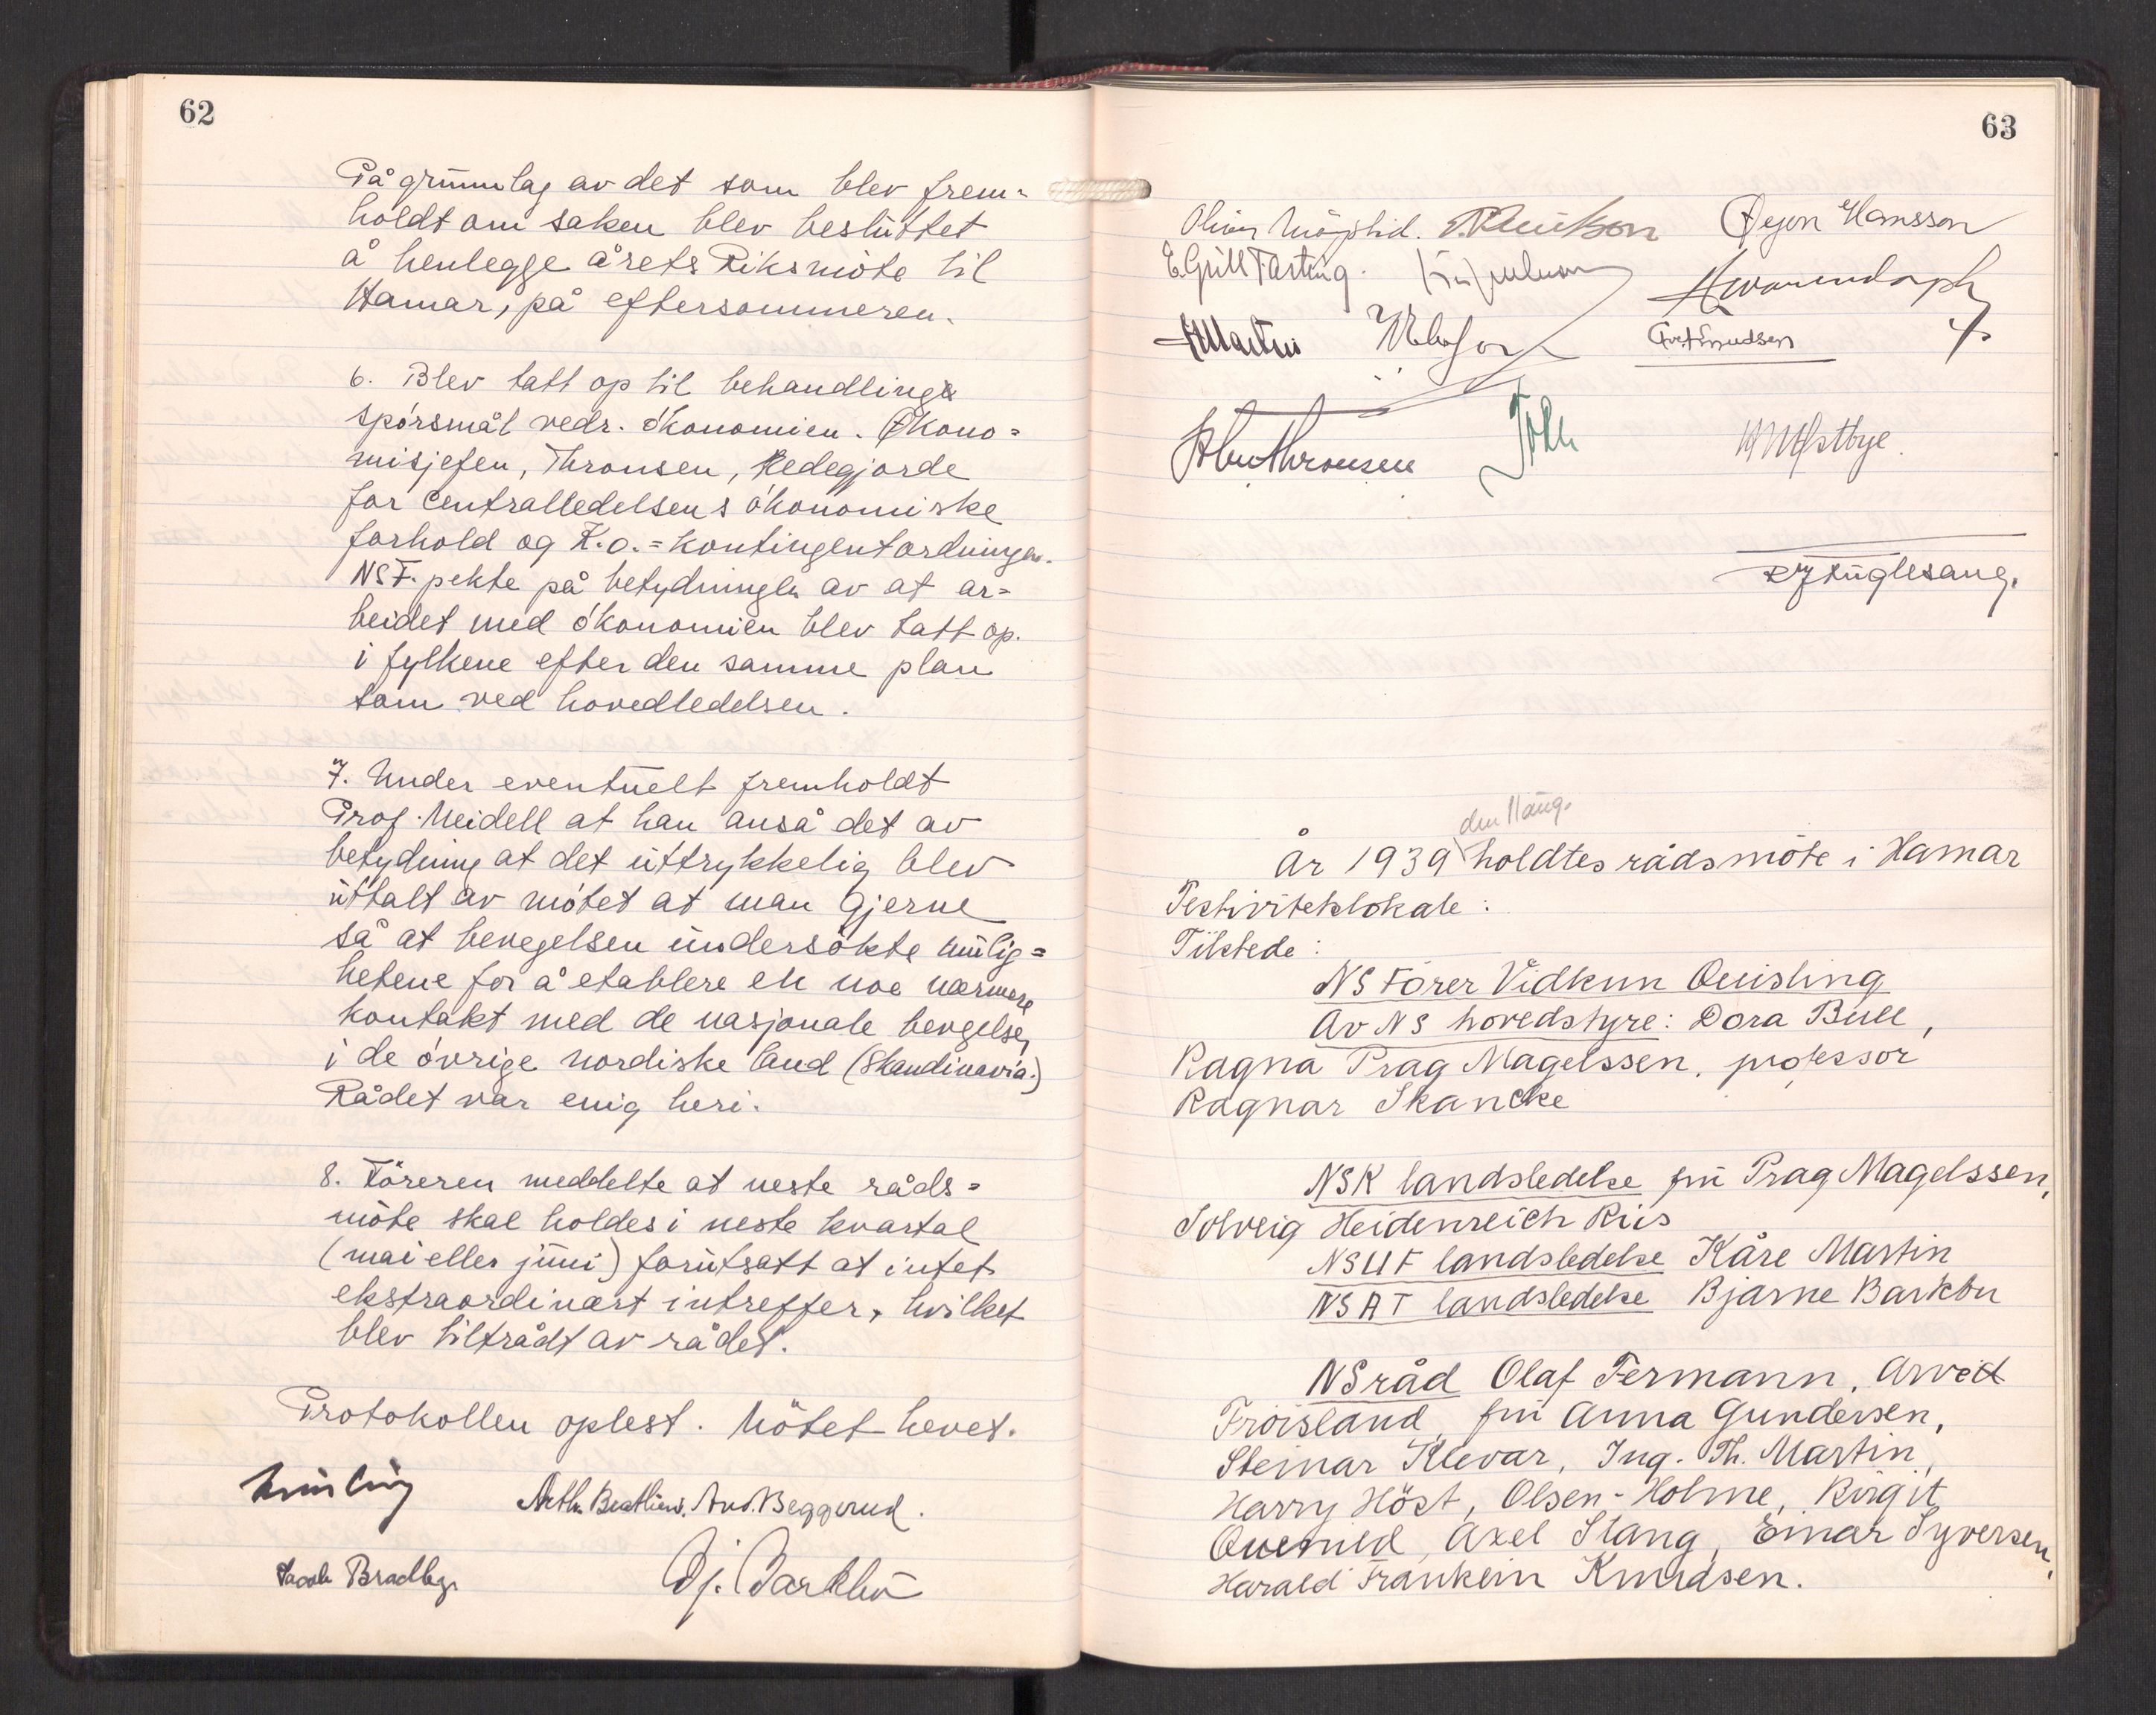 62
På grunnlag av det som blev frem=
holdt om saken blev besluttet
å henlegge årets Riksmöte til
Hamar, på eftersommeren.
6. Blev tatt op til behandling
spörsmål vedr. ökonomien. Ökono=
misjefen, Thronsen, Redegjorde
for Centralledelsens ökonomiske
forhold og K.o.=kontingentordningen.
NSF. pekte på betydningen av at ar=
beidet med ökonomien blev tatt op.
i fylkene efter den samme plan
som ved hovedledelsen.
7. Under eventuelt fremholdt
Prof. Meidell at han anså det av
betydning at det uttrykkelig blev
uttalt av mötet at man gjerne
så at bevegelsen undersökte mulig=
hetene for å etablere en noe nærmere
kontakt med de nasjonale bevgelser
i de övrige nordiske land (Skandinavia.)
Rådet var enig heri.
8. Föreren meddelte at neste råds=
möte skal holdes i neste kvartal
(mai eller juni) forutsatt at intet
ekstraordinært intreffer, hvilket
blev tiltrådt av rådet.
Protokollen oplest. Mötet hevet.
Quisling
And. Beggerud.
Jacob
Bj. Barkbu
63
Oliver Möystad. Öyon Hansson
E. Grill Fasting.
Martin
Thronsen
Østbye.
R J Fuglesang.
den 11 aug.
År 1939 holdtes rådsmöte i Hamar
Festivitetslokale:
Tilstede:
NS Förer Vidkun Quisling
Av NS hovedstyre: Dora Bull,
Ragna Prag Magelssen, professor
Ragnar Skancke
NSK landsledelse fru Prag Magelssen,
Solveig Heidenreich Riis
NSUF landsledelse Kåre Martin
NSAT landsledelse Bjarne Barkbu
NSråd Olaf Fermann, Arvid
Fröisland, fru Anna Gundersen,
Steinar Klevar, Ing. Th. Martin,
Harry Höst, Olsen-Holme, Birgit
Quenild, Axel Stang, Einar Syversen,
Harald Franklin Knudsen.